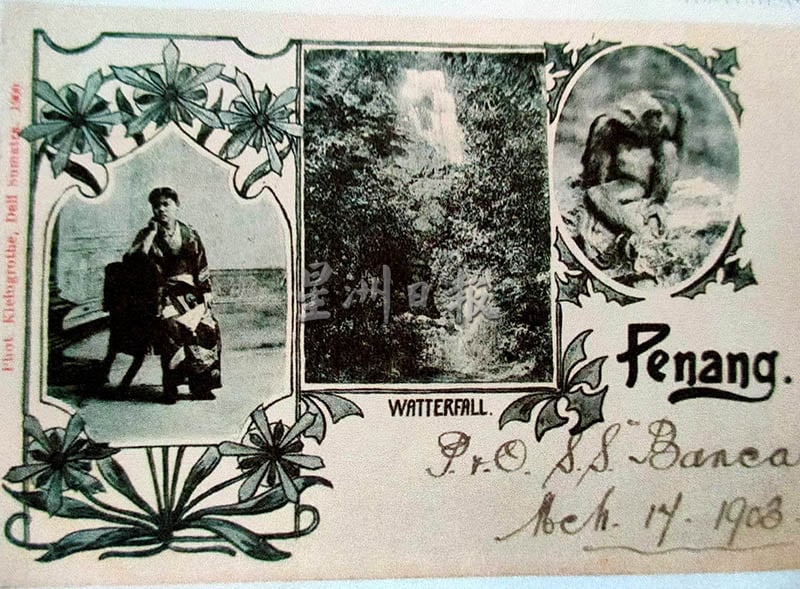 Phot. Kleingrothe, Deli Sumatra. 1900
星洲日報
WATTERFALL.
Penang.
P. & O. S.S. "Banca
Mch. 14. 1903.